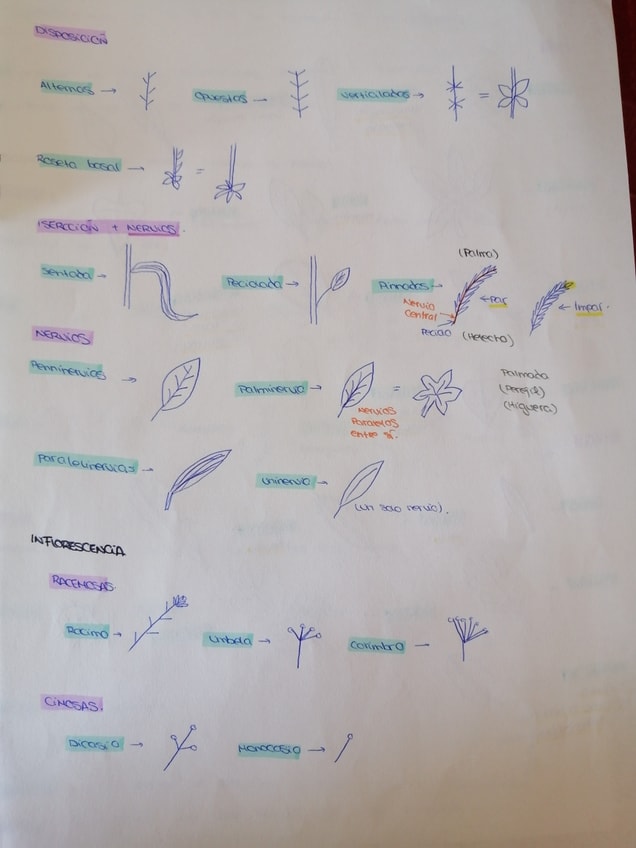 DISPOSICIÓN
Alternos →
opuestos →
verticilados → =
Roseta basal → =
ISERCCIÓN + NERVIOS.
Sentada →
Peciolada →
Pinnados →
(Palma)
Nervio
Central →
← Par
← Impar.
Peciolo
(Helecho)
NERVIOS
Penninervios →
Palminervia → =
Nervios
Paralelos
entre sí.
Palmada
(Perejil)
(Higuera)
Paralelinervias →
uninervia →
(un solo nervio).
INFLORESCENCIA
RACEMOSAS.
Racimo →
Umbela →
Corimbro —
CIMOSAS.
Dicasio →
Monocasio →